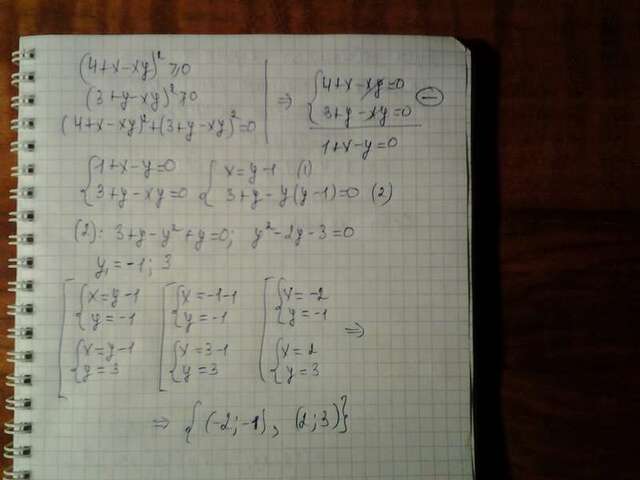 (4+x-xy)² ≥ 0
(3+y-xy)² ≥ 0
(4+x-xy)²+(3+y-xy)²=0
⇒ { 4+x-xy=0
{ 3+y-xy=0 (−)
1+x-y=0
{ 1+x-y=0 { x=y-1 (1)
{ 3+y-xy=0 { 3+y-y(y-1)=0 (2)
(2): 3+y-y²+y=0; y²-2y-3=0
y₁=-1; 3
[ { x=y-1 [ { x=-1-1 [ { x=-2
{ y=-1 { y=-1 { y=-1 ⇒
{ x=y-1 { x=3-1 { x=2
{ y=3 { y=3 { y=3
⇒ {(-2;-1), (2;3)}